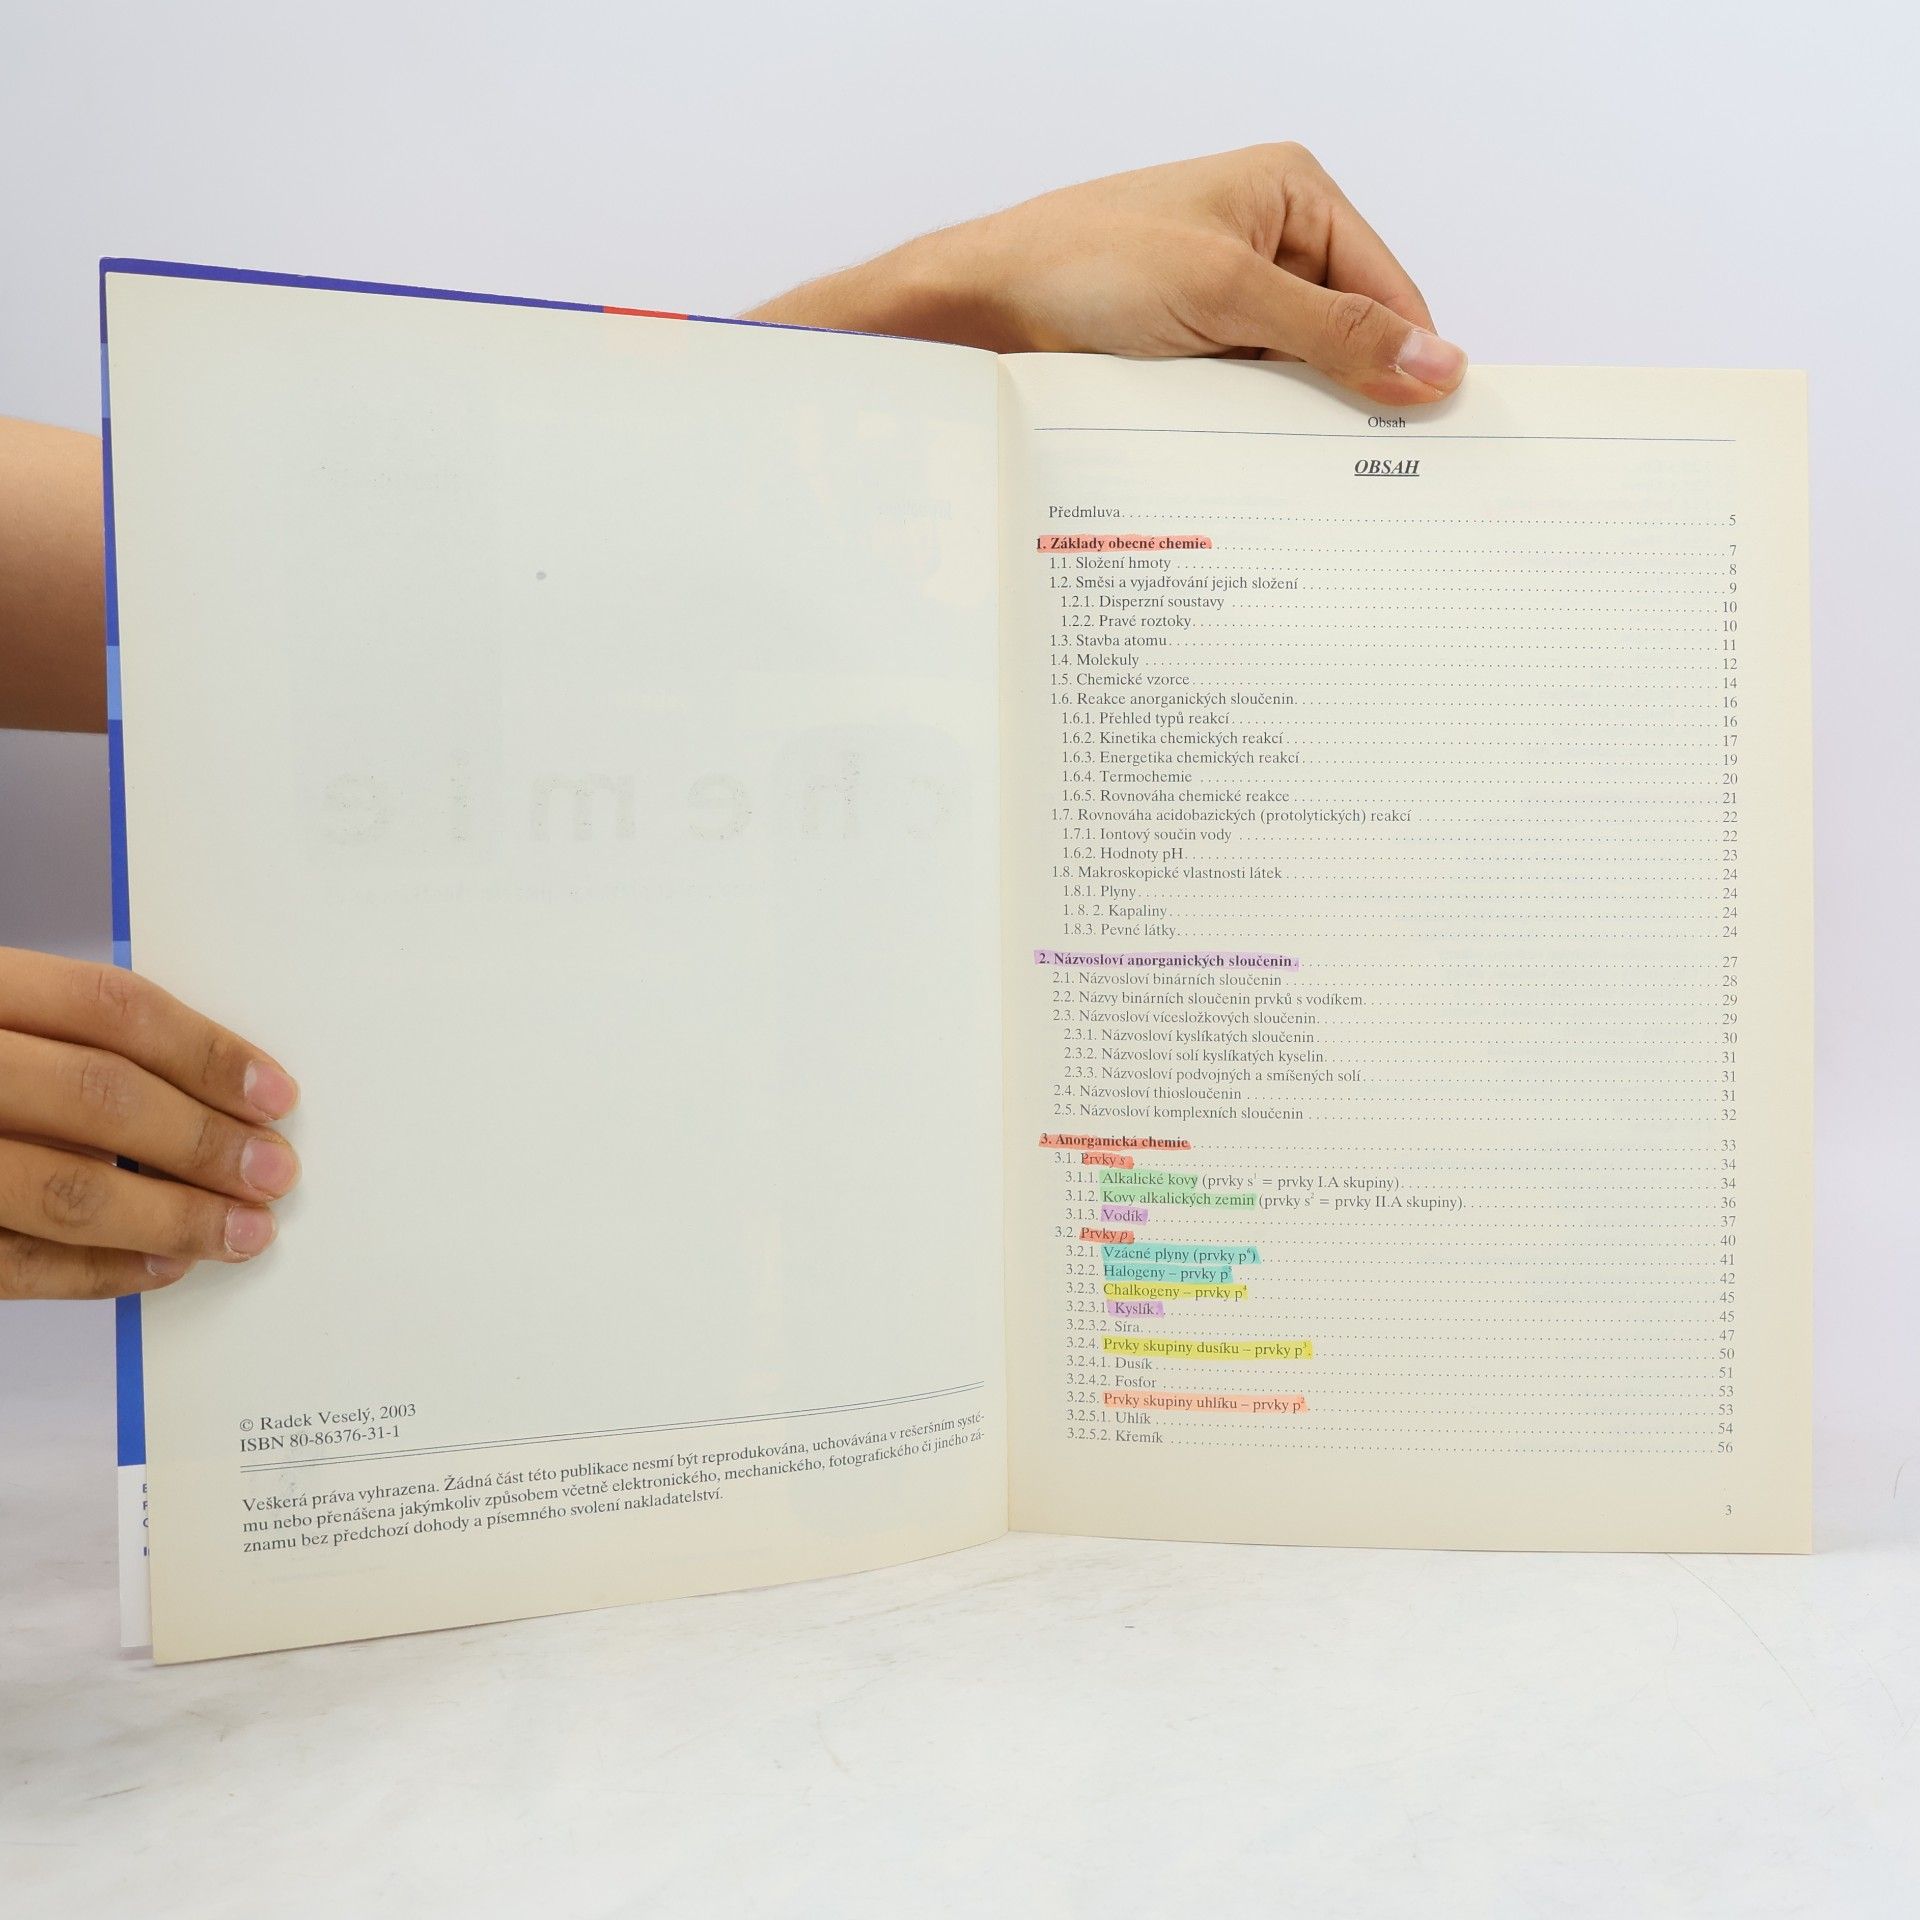 © Radek Veselý, 2003
ISBN 80-86376-31-1
Veškerá práva vyhrazena. Žádná část této publikace nesmí být reprodukována, uchovávána v rešeršním systé-
mu nebo přenášena jakýmkoliv způsobem včetně elektronického, mechanického, fotografického či jiného zá-
znamu bez předchozí dohody a písemného svolení nakladatelství.
Obsah
OBSAH
Předmluva 5
1. Základy obecné chemie 7
1.1. Složení hmoty 8
1.2. Směsi a vyjadřování jejich složení 9
1.2.1. Disperzní soustavy 10
1.2.2. Pravé roztoky 10
1.3. Stavba atomu 11
1.4. Molekuly 12
1.5. Chemické vzorce 14
1.6. Reakce anorganických sloučenin 16
1.6.1. Přehled typů reakcí 16
1.6.2. Kinetika chemických reakcí 17
1.6.3. Energetika chemických reakcí 19
1.6.4. Termochemie 20
1.6.5. Rovnováha chemické reakce 21
1.7. Rovnováha acidobazických (protolytických) reakcí 22
1.7.1. Iontový součin vody 22
1.6.2. Hodnoty pH 23
1.8. Makroskopické vlastnosti látek 24
1.8.1. Plyny 24
1. 8. 2. Kapaliny 24
1.8.3. Pevné látky 24
2. Názvosloví anorganických sloučenin 27
2.1. Názvosloví binárních sloučenin 28
2.2. Názvy binárních sloučenin prvků s vodíkem 29
2.3. Názvosloví vícesložkových sloučenin 29
2.3.1. Názvosloví kyslíkatých sloučenin 30
2.3.2. Názvosloví solí kyslíkatých kyselin 31
2.3.3. Názvosloví podvojných a smíšených solí 31
2.4. Názvosloví thiosloučenin 31
2.5. Názvosloví komplexních sloučenin 32
3. Anorganická chemie 33
3.1. Prvky s 34
3.1.1. Alkalické kovy (prvky s¹ = prvky I.A skupiny) 34
3.1.2. Kovy alkalických zemin (prvky s² = prvky II.A skupiny) 36
3.1.3. Vodík 37
3.2. Prvky p 40
3.2.1. Vzácné plyny (prvky p⁶) 41
3.2.2. Halogeny – prvky p⁵ 42
3.2.3. Chalkogeny – prvky p⁴ 45
3.2.3.1. Kyslík 45
3.2.3.2. Síra 47
3.2.4. Prvky skupiny dusíku – prvky p³ 50
3.2.4.1. Dusík 51
3.2.4.2. Fosfor 53
3.2.5. Prvky skupiny uhlíku – prvky p² 53
3.2.5.1. Uhlík 54
3.2.5.2. Křemík 56
3